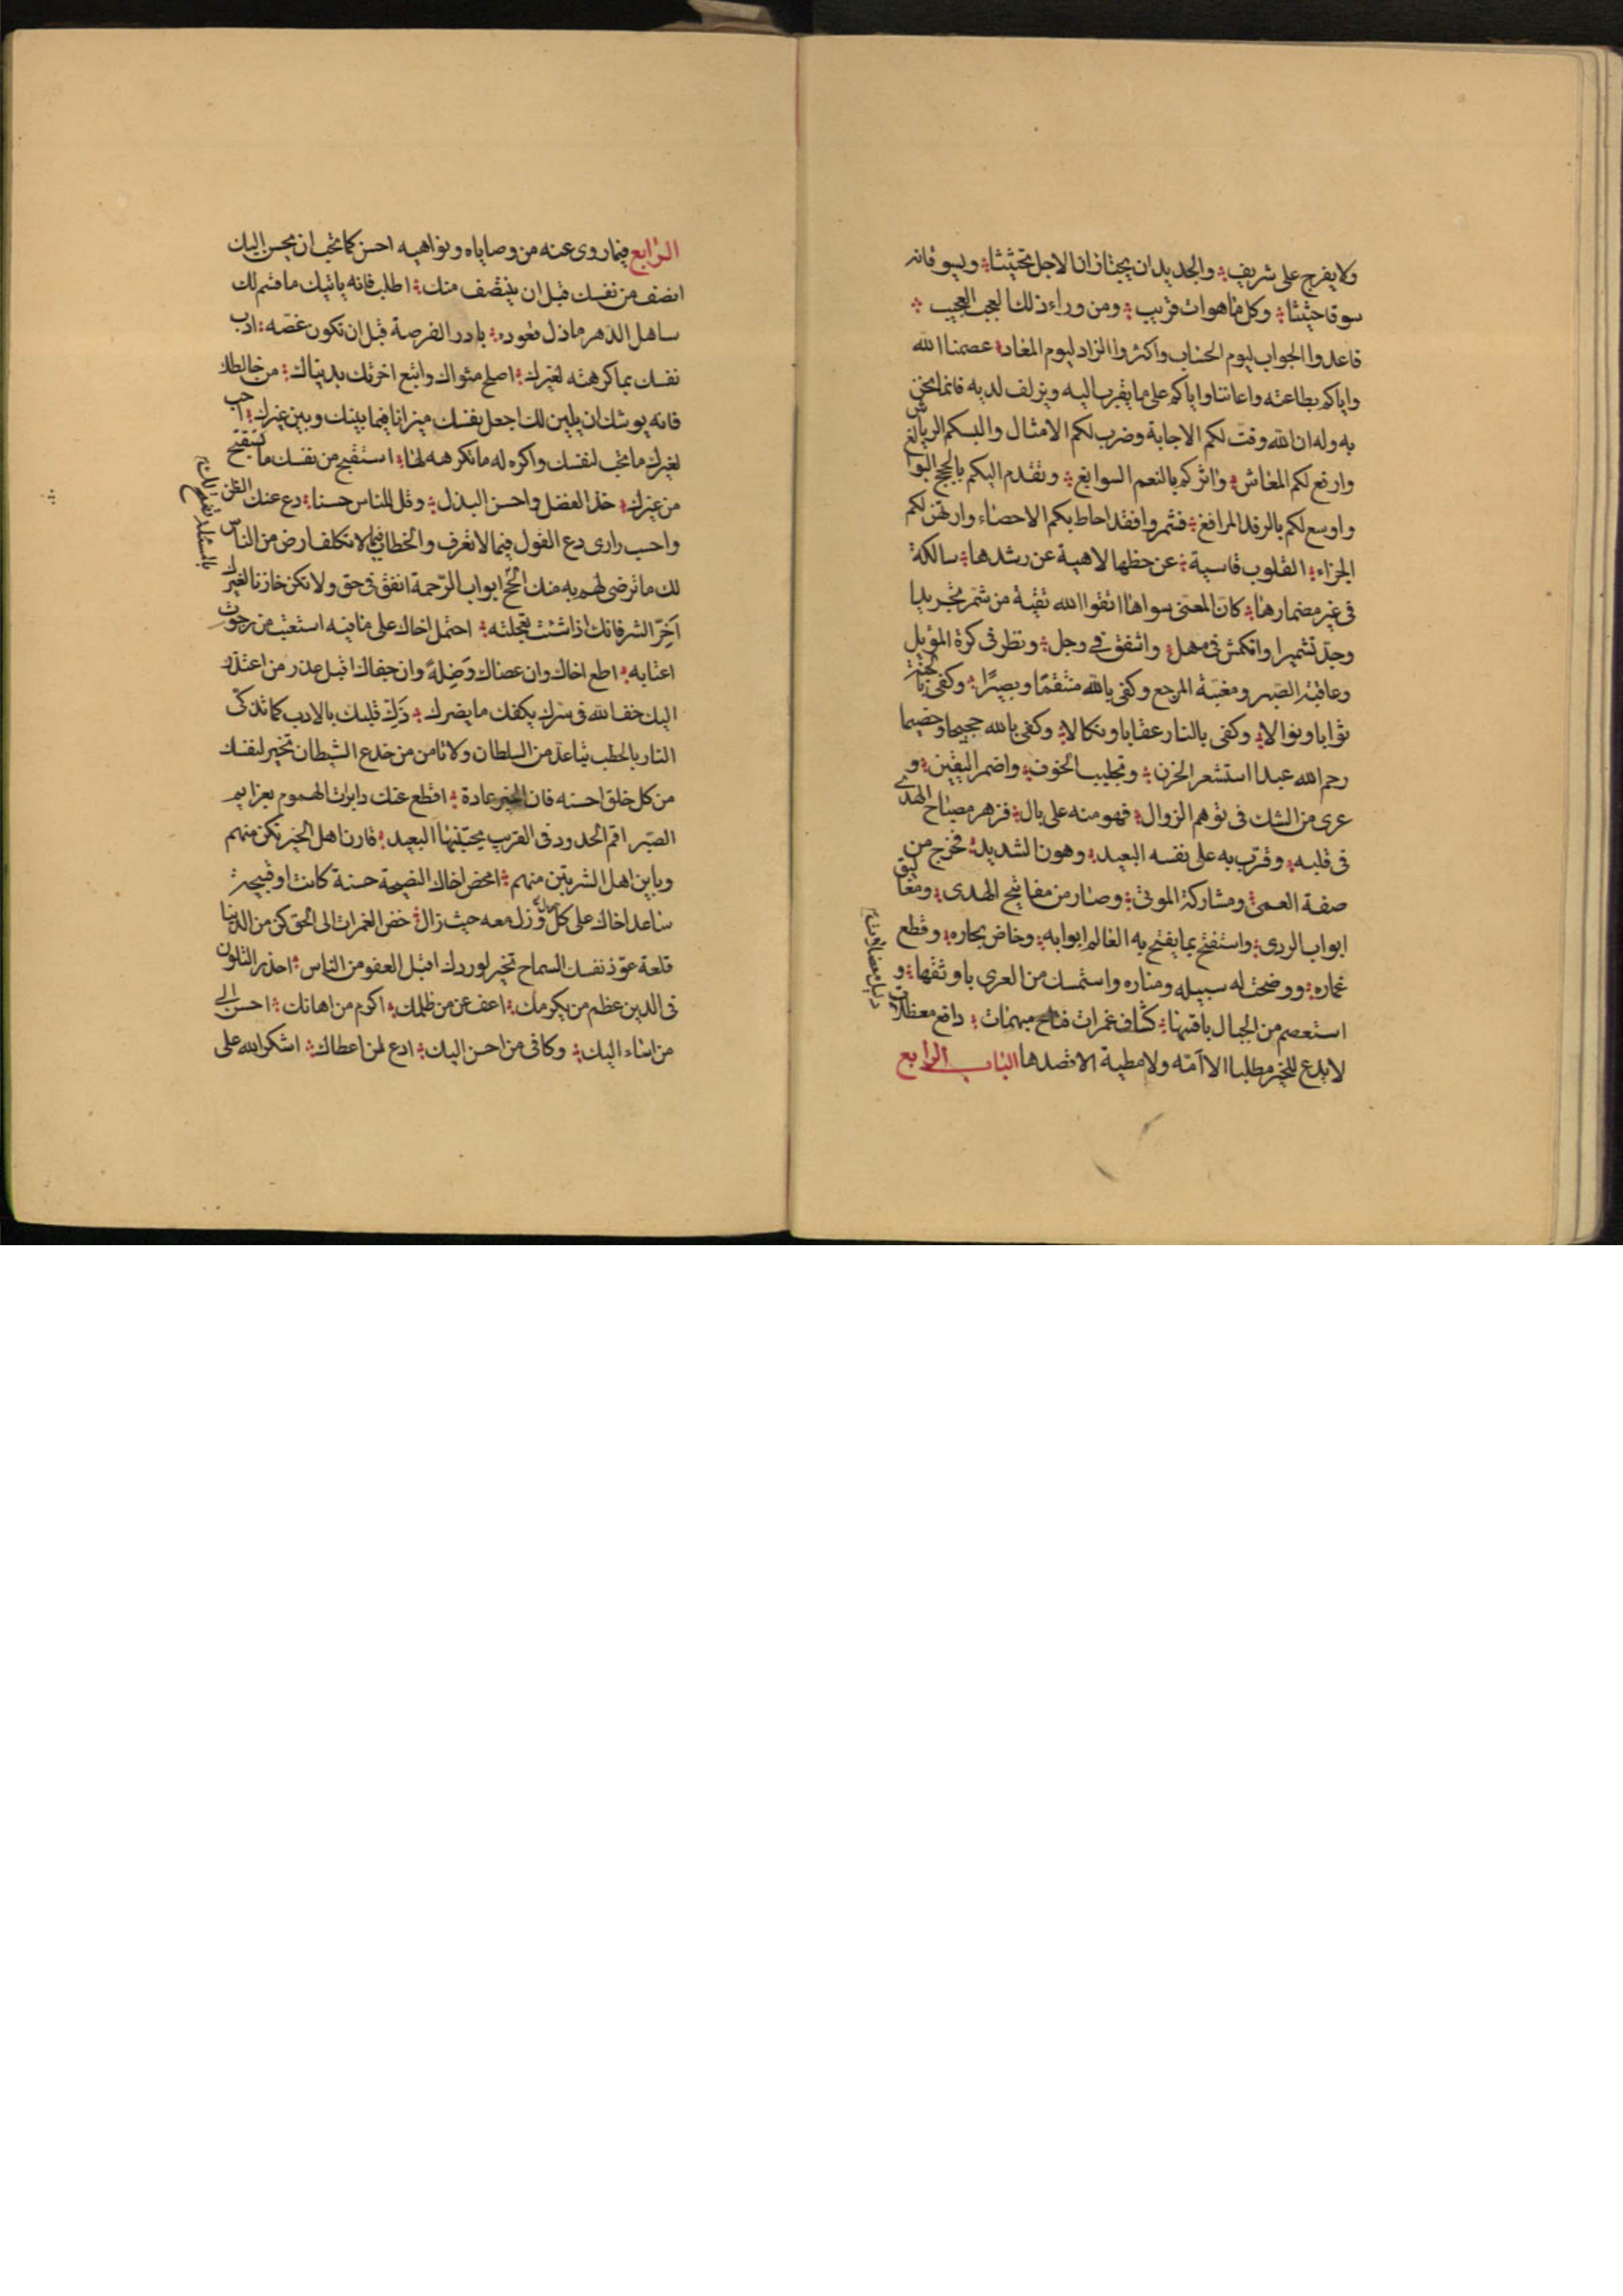 ولا يفرج على شريف والجديدان يحثان الاجل تحثيثا ويسوقانه
سوقا حثيثا وكل ما هوات قريب ومن وراء ذلك العجب العجيب
فاعدوا الجواب ليوم الحساب واكثروا الزاد ليوم المعاد عصمنا الله
واياكم بطاعته واعاننا واياكم على ما يقرب اليه ويزلف لديه فانما نحن
به وله ان الله وقت لكم الاجابة وضرب لكم الامثال والبسكم الرياش
وارفع لكم المعاش واثركم بالنعم السوابغ وتقدم اليكم بالحجج البوالغ
واوسع لكم بالرفد المرافغ فشمروا فقد احاط بكم الاحصاء وارتهن لكم
الجزاء القلوب قاسية عن حظها لاهية عن رشدها سالكة
فى غير مضمارها كان المعنى سواها اتقوا الله تقية من شمر تجريدا
وجد تشميرا وانكمش فى مهل واشفق فى وجل ونظر فى كرة الموئل
وعاقبة الصبر ومغبة المرجع وكفى بالله منتقما وبصيرا وكفى بالجنة
ثوابا ونوالا وكفى بالنار عقابا ونكالا وكفى بالله حجيجا وخصيما
رحم الله عبدا استشعر الحزن وتجلبب الخوف واضمر اليقين و
عرى من الشك فى توهم الزوال فهو منه على بال فزهر مصباح الهدى
فى قلبه وقرب به على نفسه البعيد وهون الشديد فخرج من
صفة العمى ومشاركة الموتى وصار من مفاتيح الهدى ومغاليق
ابواب الردى واستفتح بما يفتح به العالم ابوابه وخاض بحاره وقطع
غماره ووضحت له سبيله ومناره واستمسك من العرى باوثقها و
استعصم من الجبال بامتنها كشاف غمرات فتاح مبهمات دافع معظلات
لا يدع للخير مطلبا الا امه ولا مطية الا قصدها الباب الرابع
الرابع فيما روى عنه من وصاياه ونواهيه احسن كما تحب ان يحسن اليك
انصف من نفسك قبل ان ينتصف منك اطلب فانه ياتيك ما قسم لك
ساهل الدهر ما ذل قعوده بادر الفرصة قبل ان تكون غصه ادب
نفسك بما كرهته لغيرك اصلح مثواك وابتع اخرتك بدنياك من خالطك
فانه يوشك ان يلين لك اجعل نفسك ميزانا فيما بينك وبين غيرك احب
لغيرك ما تحب لنفسك واكره له ما تكره لها استقبح من نفسك ما تستقبح
من غيرك خذ الفضل واحسن البذل وقل للناس حسنا دع عنك الظن
واحسب وارى دع القول فيما لا تعرف والخطاب فيما لا تكلف ارض من الناس
لك ما ترضى لهم به منك الحح ابواب الرحمة انفق فى حق ولا تكن خازنا لغيرك
اخر الشر فانك اذا شئت تعجلته احتمل اخاك على ما فيه استعتب من رجوت
اعتابه اطع اخاك وان عصاك وصله وان جفاك اقبل عذر من اعتذر
اليك خف الله فى سرك يكفك ما يضرك ذك قلبك بالادب كما تذكى
النار بالحطب تباعد من السلطان ولا تامن من خدع الشيطان تخير لنفسك
من كل خلق احسنه فان الخير عادة اقطع عنك دابرات الهموم بعزايم
الصبر اقم الحدود فى القريب يجتنبها البعيد قارن اهل الخير تكن منهم
وباين اهل الشر تبن منهم امحض اخاك النصيحة حسنة كانت او قبيحة
ساعد اخاك على كل حال وزل معه حيث زال خض الغمرات الى الحق كن من الدنيا
قلعة عود نفسك السماح تخير لوردك اقبل العفو من الناس احذر التلون
فى الدين عظم من يكرمك اعف عن من ظلمك اكرم من اهانك احسن الى
من اساء اليك وكافى من احسن اليك ادع لمن اعطاك اشكر الله على